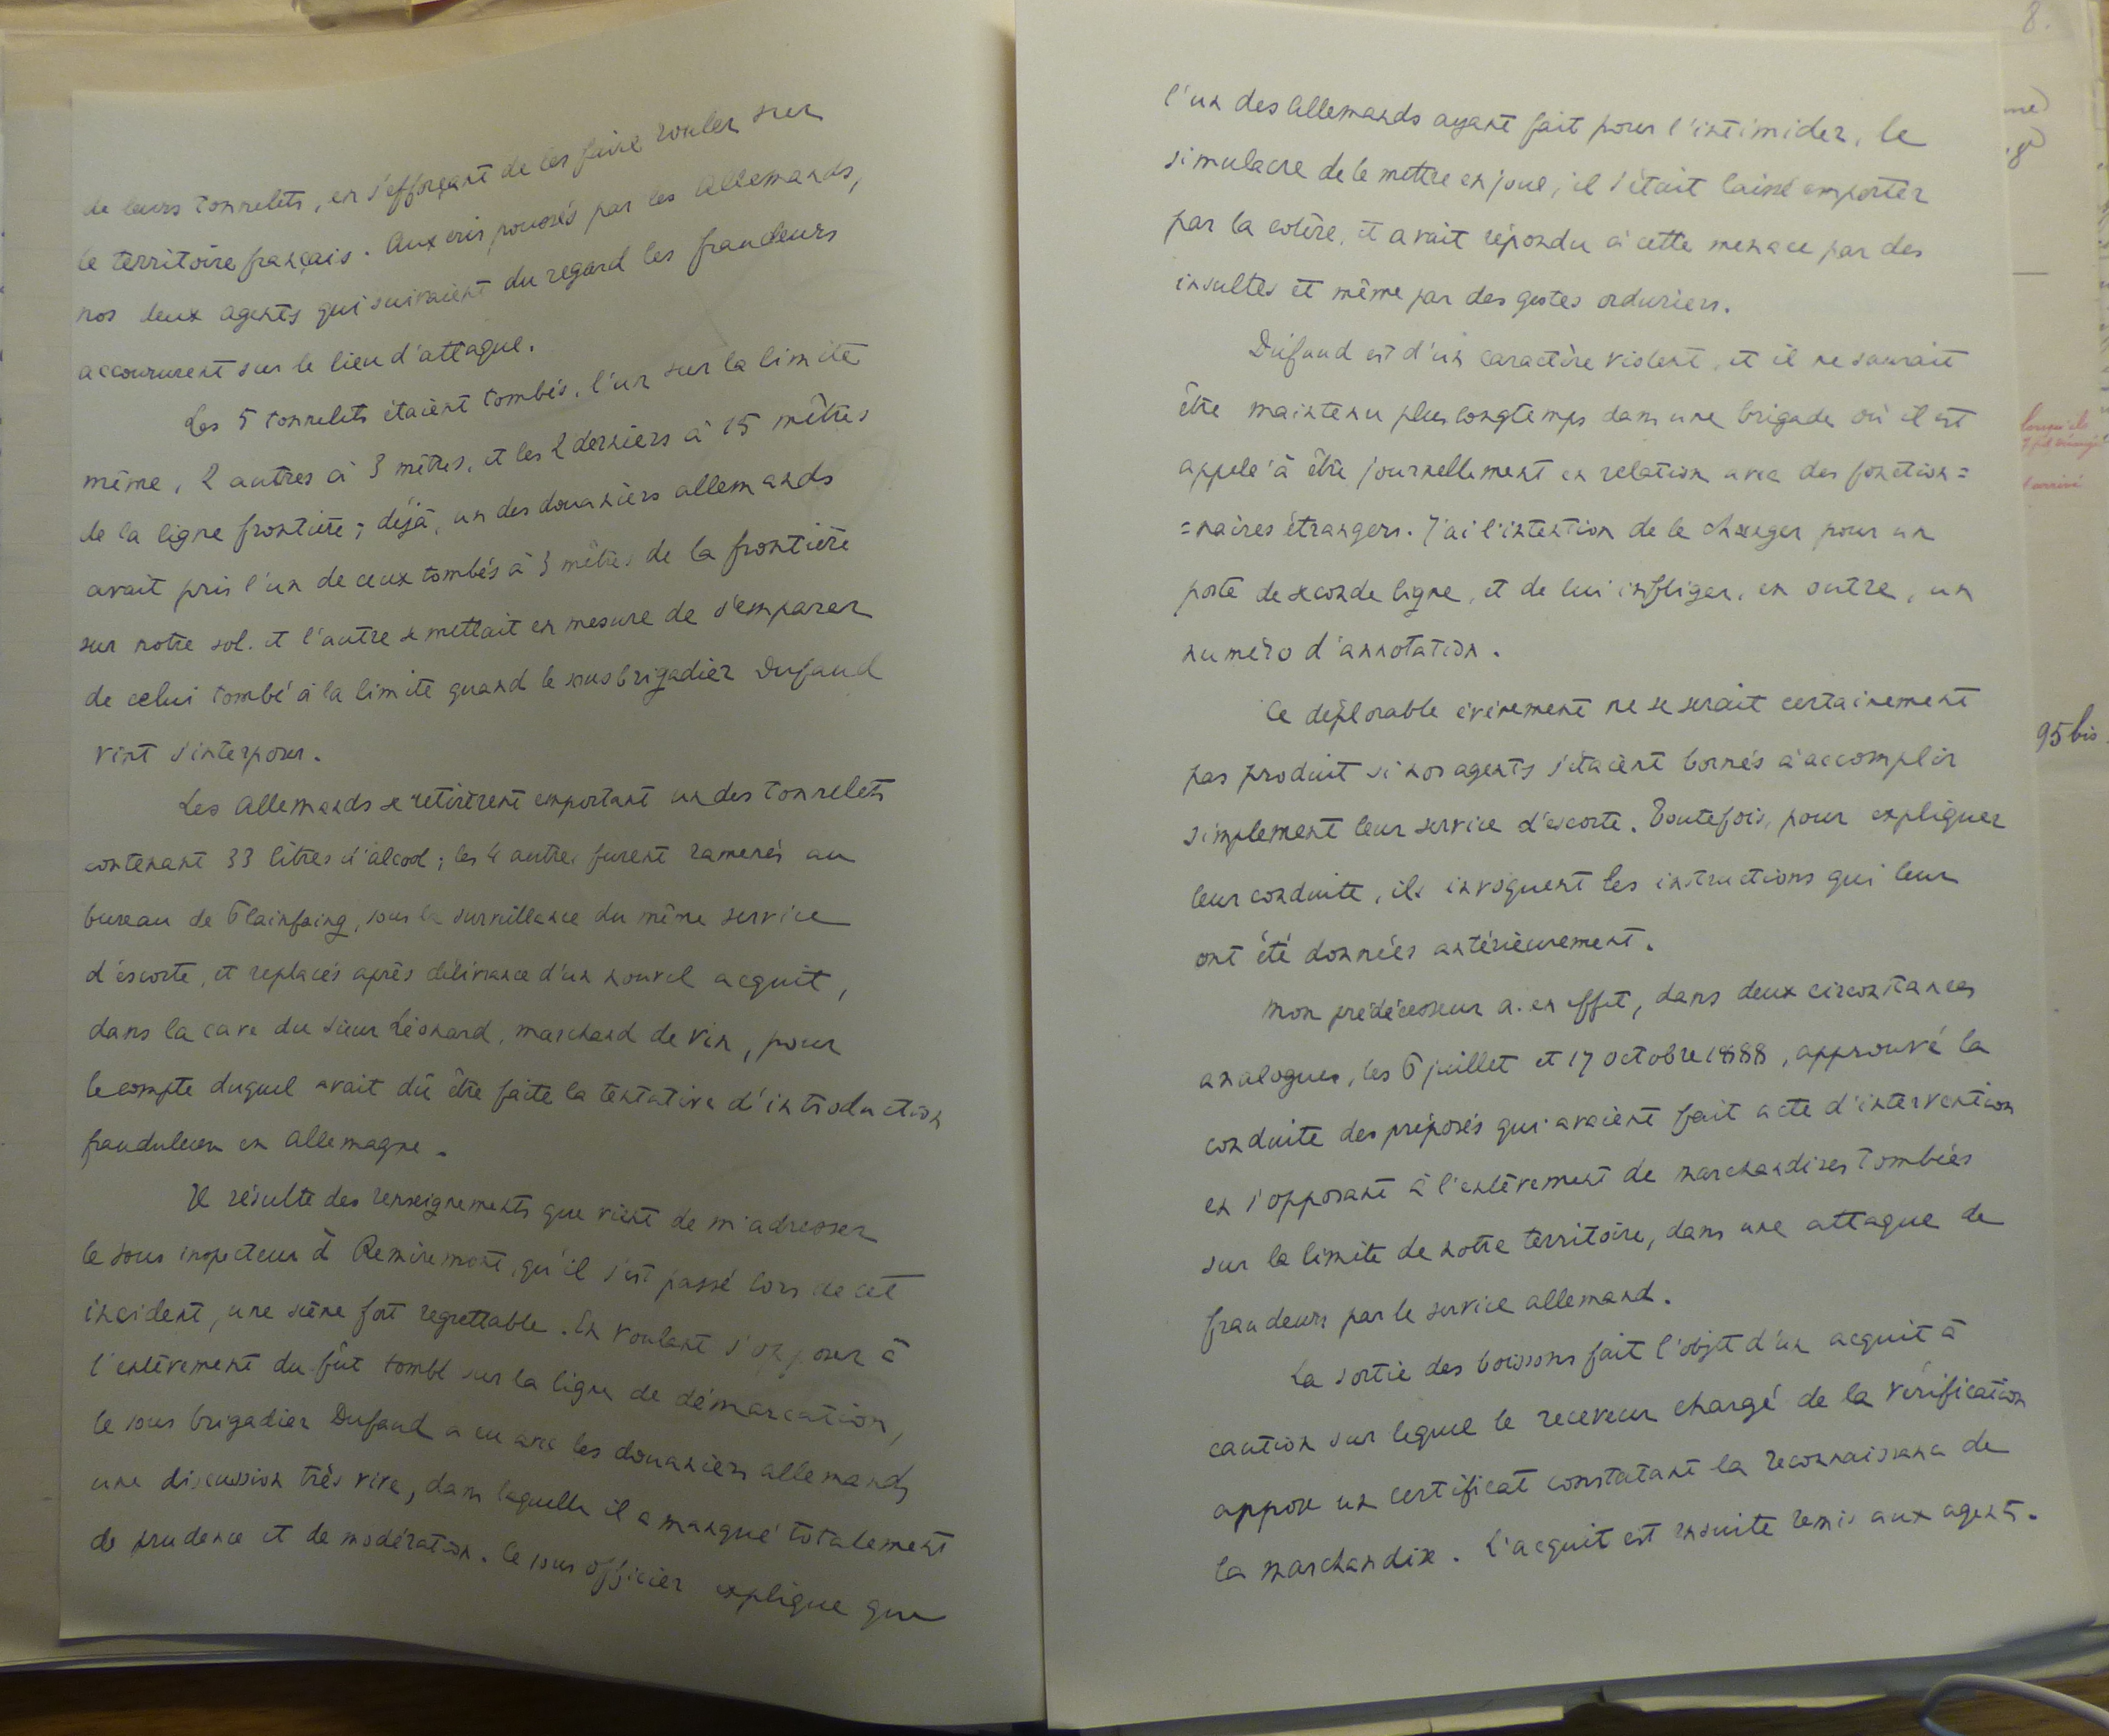 de leurs tonnelets, en s'efforçant de les faire rouler sur
le territoire français. Aux cris poussés par les Allemands,
nos deux agents qui suivaient du regard les fraudeurs
accoururent sur le lieu d'attaque.
Les 5 tonnelets étaient tombés, l'un sur la limite
même, 2 autres à 3 mètres, et les 2 derniers à 15 mètres
de la ligne frontière; déjà, un des douaniers allemands
avait pris l'un de ceux tombés à 3 mètres de la frontière
sur notre sol. et l'autre se mettait en mesure de s'emparer
de celui tombé à la limite quand le sous brigadier Dufaud
vint s'interposer.
Les Allemands se retirèrent emportant un des tonnelets
contenant 33 litres d'alcool; les 4 autres furent ramenés au
bureau de Plainfaing, sous la surveillance du même service
d'escorte, et replacés après délivrance d'un nouvel acquit,
dans la cave du sieur Léonard, marchand de vin, pour
le compte duquel avait dû être faite la tentative d'introduction
frauduleuse en Allemagne.
Il résulte des renseignements que vient de m'adresser
le sous inspecteur à Remiremont, qu'il s'est passé lors de cet
incident, une scène fort regrettable. En voulant s'opposer à
l'enlèvement du fût tombé sur la ligne de démarcation,
le sous brigadier Dufaud a eu avec les douaniers allemands
une discussion très vive, dans laquelle il a manqué totalement
de prudence et de modération. Ce sous officier explique que
8.
l'un des Allemands ayant fait pour l'intimider, le
simulacre de le mettre en joue, il s'était laissé emporter
par la colère, et avait répondu à cette menace par des
insultes et même par des gestes orduriers.
Dufaud est d'un caractère violent, et il ne saurait
être maintenu plus longtemps dans une brigade où il est
appelé à être journellement en relation avec des fonction=
=naires étrangers. J'ai l'intention de le changer pour un
poste de seconde ligne, et de lui infliger, en outre, un
numéro d'annotation.
Ce déplorable évènement ne se serait certainement
pas produit si nos agents s'étaient bornés à accomplir
simplement leur service d'escorte. Toutefois, pour expliquer
leur conduite, ils invoquent les instructions qui leur
ont été données antérieurement.
Mon prédécesseur a. en effet, dans deux circonstances
analogues, les 6 juillet et 17 octobre 1888, approuvé la
conduite des préposés qui avaient fait acte d'intervention
en s'opposant à l'enlèvement de marchandises tombées
sur la limite de notre territoire, dans une attaque de
fraudeurs par le service allemand.
La sortie des boissons fait l'objet d'un acquit à
caution sur lequel le receveur chargé de la vérification
appose un certificat constatant la reconnaissance de
la marchandise. L'acquit est ensuite remis aux agents.
95 bis